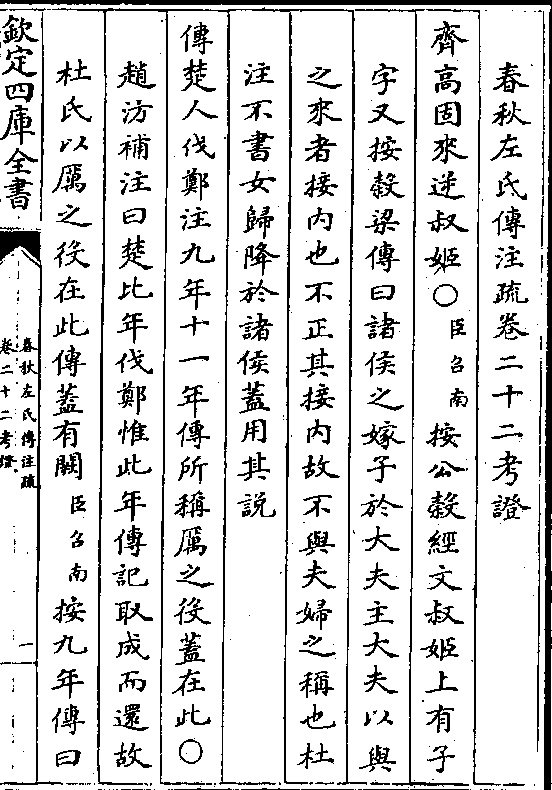 春秋左氏傳注疏卷二十二考證
齊高固來逆叔姬○臣召南按公穀經文叔姬上有子
字又按穀梁傳曰諸侯之嫁子於大夫主大夫以與
之來者接内也不正其接内故不與夫婦之稱也杜
注不書女歸降於諸侯蓋用其説
傳楚人伐鄭注九年十一年傳所稱厲之役蓋在此○
趙汸補注曰楚比年伐鄭惟此年傳記取成而還故
杜氏以厲之役在此傳蓋有闕臣召南按九年傳曰
欽定四庫全書
春秋左氏傳注疏
卷二十二考證
一